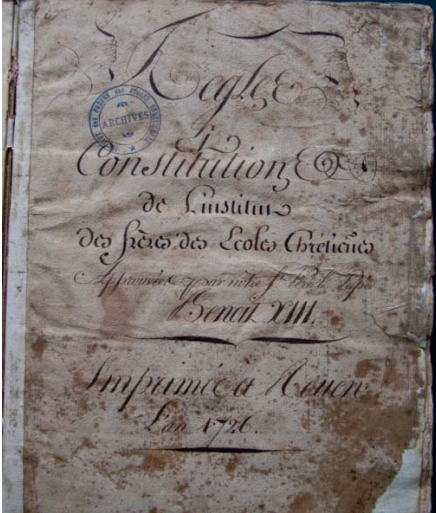 Regles
&
Constitutions
de L'institut
des frères des Ecoles Chretienes
Approuvées par notre St Père le Pape
Benoit XIII.
Imprimée a Rouen
L'an 1726.
ARCHIVES